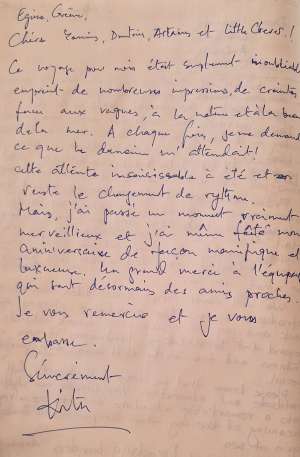 Egine, Grèce,
Chère Yannis, Dantois, Artains et Little Cheres.!
Ce voyage pour mois était simplement inoubliable
empreint de nombreuses impressions, de craintes
face aux vagues, à la nature et à la beauté
de la mer. A chaque fois, je me demandais
ce que le demain m'attendait!
cette attente insaisissable a été et
reste le changement de rythme.
Mais, j'ai passé un moment vraiment
merveilleux et j'ai même fêté mon
anniversaire de façon manifique et
luxueuse. Un grand merci à l'équipage
qui sont désormais des amis proches.
Je vous remercie et je vous
embrasse.
Sincèrement